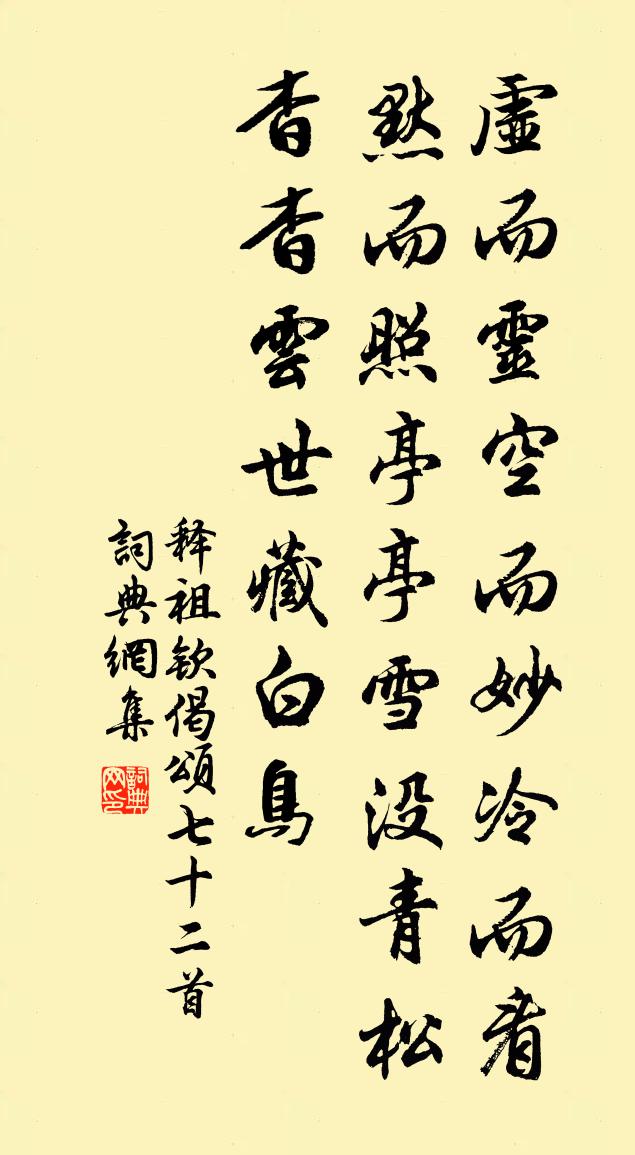 虛而靈空而妙冷而看
默而照亭亭雪没青松
杳杳雲世藏白鳥
释祖钦偈頌七十二首
詞典網集
詞典网印